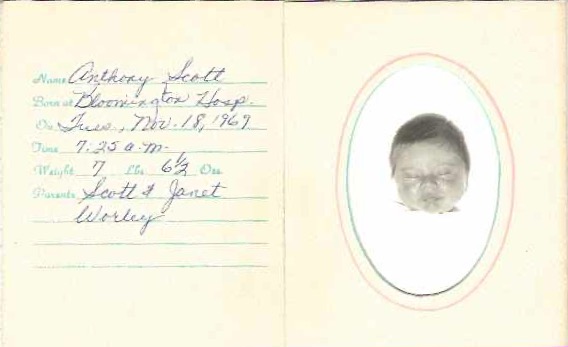 Name Anthony Scott
Born at Bloomington Hosp.
On Tues., Nov. 18, 1969
Time 7:25 a.m.
Weight 7 Lbs 6 1/2 Ozs
Parents Scott & Janet
Worley